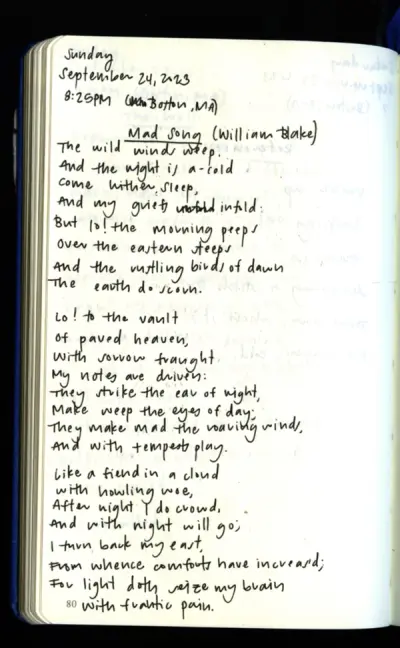 Sunday
September 24, 2023
8:25PM (Boston, MA)
Mad Song (William Blake)
The wild winds weep.
And the night is a-cold
Come hither, Sleep,
And my griefs infold:
But lo! the morning peeps
Over the eastern steeps
And the rustling birds of dawn
The earth do scorn.
Lo! to the vault
Of paved heaven,
With sorrow fraught
My notes are driven:
They strike the ear of night,
Make weep the eyes of day;
They make mad the roaring winds,
And with tempests play.
Like a fiend in a cloud
with howling woe,
After night I do crowd,
And with night will go;
I turn back my east,
From whence comforts have increas'd;
For light doth seize my brain
With frantic pain.
80